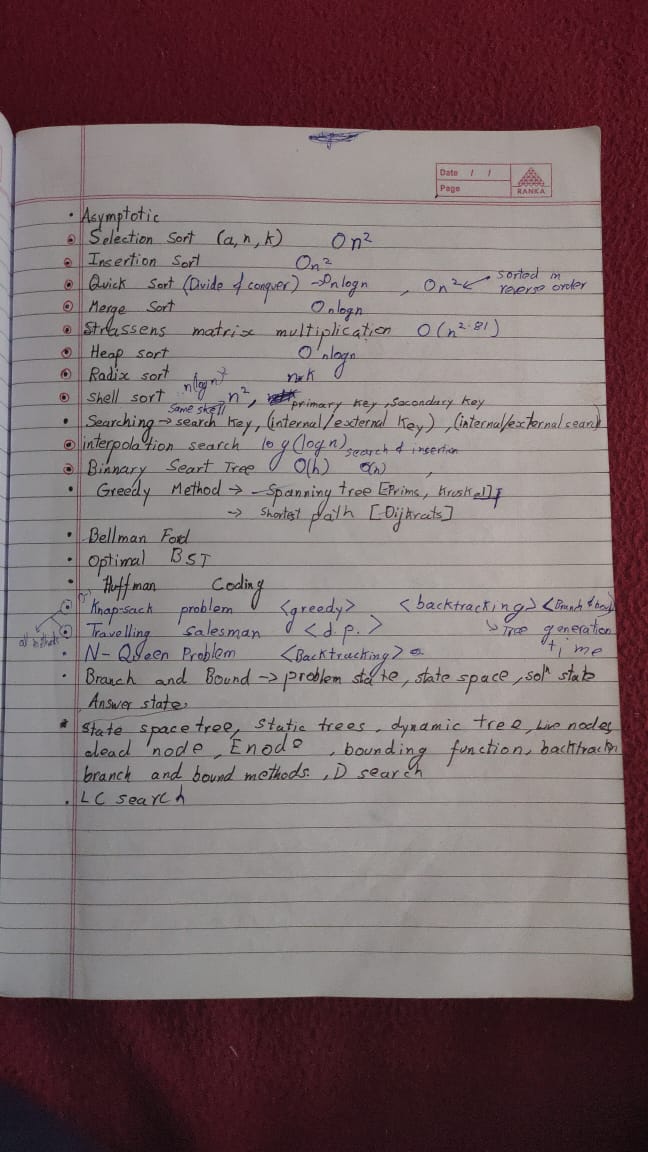 Date / /
Page
RANKA
• Asymptotic
Selection Sort (a, n, k) On²
Insertion Sort On²
Quick Sort (Divide & conquer) → Onlogn , On² ← sorted in reverse order
Merge Sort Onlogn
Strassens matrix multiplication O(n^2.81)
Heap sort Onlogn
Radix sort n*k
Shell sort n(logn)² = n², primary key, Secondary key
Same shell
• Searching → search key, (internal/external key), (internal/external search
interpolation search log(logn) search & insertion
Binnary Seart Tree O(h) O(n) ,
• Greedy Method → Spanning tree [Prims, Kruskal]
→ Shortest path [Dijkrats]
• Bellman Ford
• Optimal BST
• Huffman Coding
Knap-sack problem <greedy> <backtracking> <Branch & bound
all methods Travelling salesman <d.p.> Tree generation time
• N-Queen Problem <Backtracking>
• Branch and Bound → problem state, state space, solⁿ state
Answer state,
* State space tree, static trees, dynamic tree, Live nodes,
dead node, Enode, bounding function, backtrackin
branch and bound methods, D search
• LC search